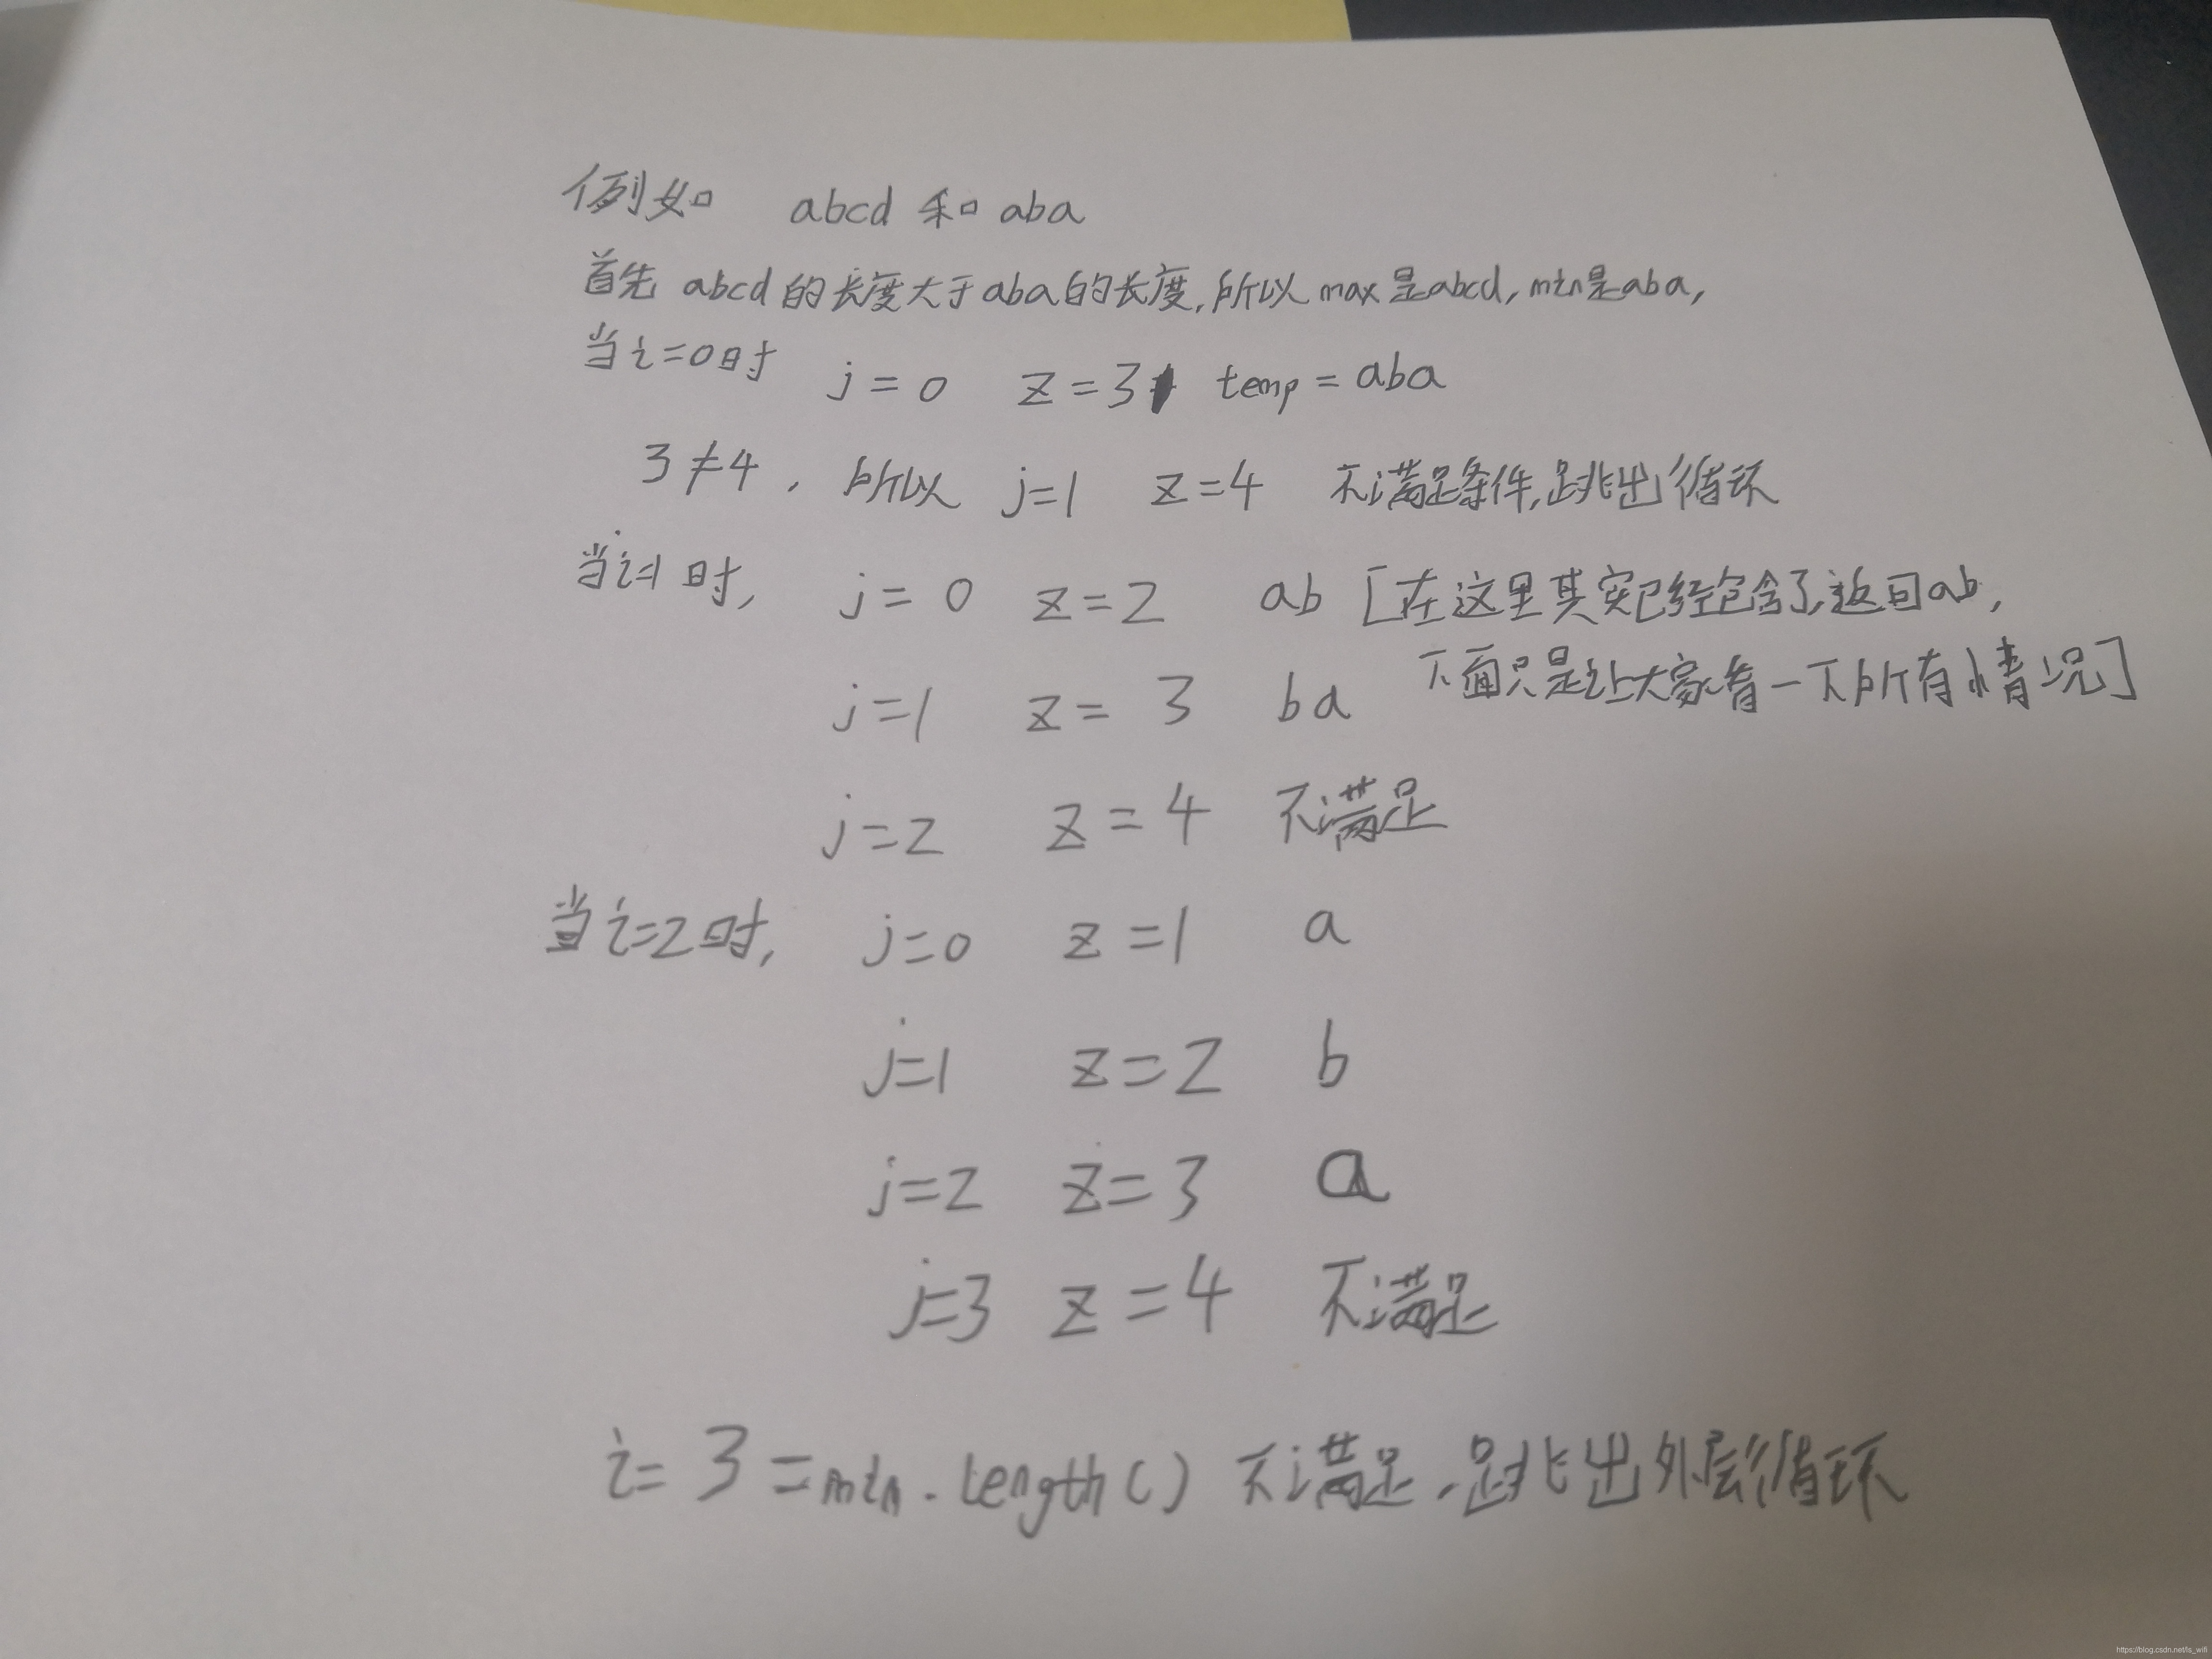 例如 abcd 和 aba
首先 abcd 的长度大于 aba 的长度, 所以 max 是 abcd, min 是 aba,
当 i=0 时 j=0 z=3 temp=aba
3≠4, 所以 j=1 z=4 不满足条件, 跳出循环
当 i=1 时, j=0 z=2 ab [在这里其实已经包含了, 返回 ab,
j=1 z=3 ba 下面只是让大家看一下所有情况]
j=2 z=4 不满足
当 i=2 时, j=0 z=1 a
j=1 z=2 b
j=2 z=3 a
j=3 z=4 不满足
i=3=min.length() 不满足, 跳出外层循环
https://blog.csdn.net/ls_wifi